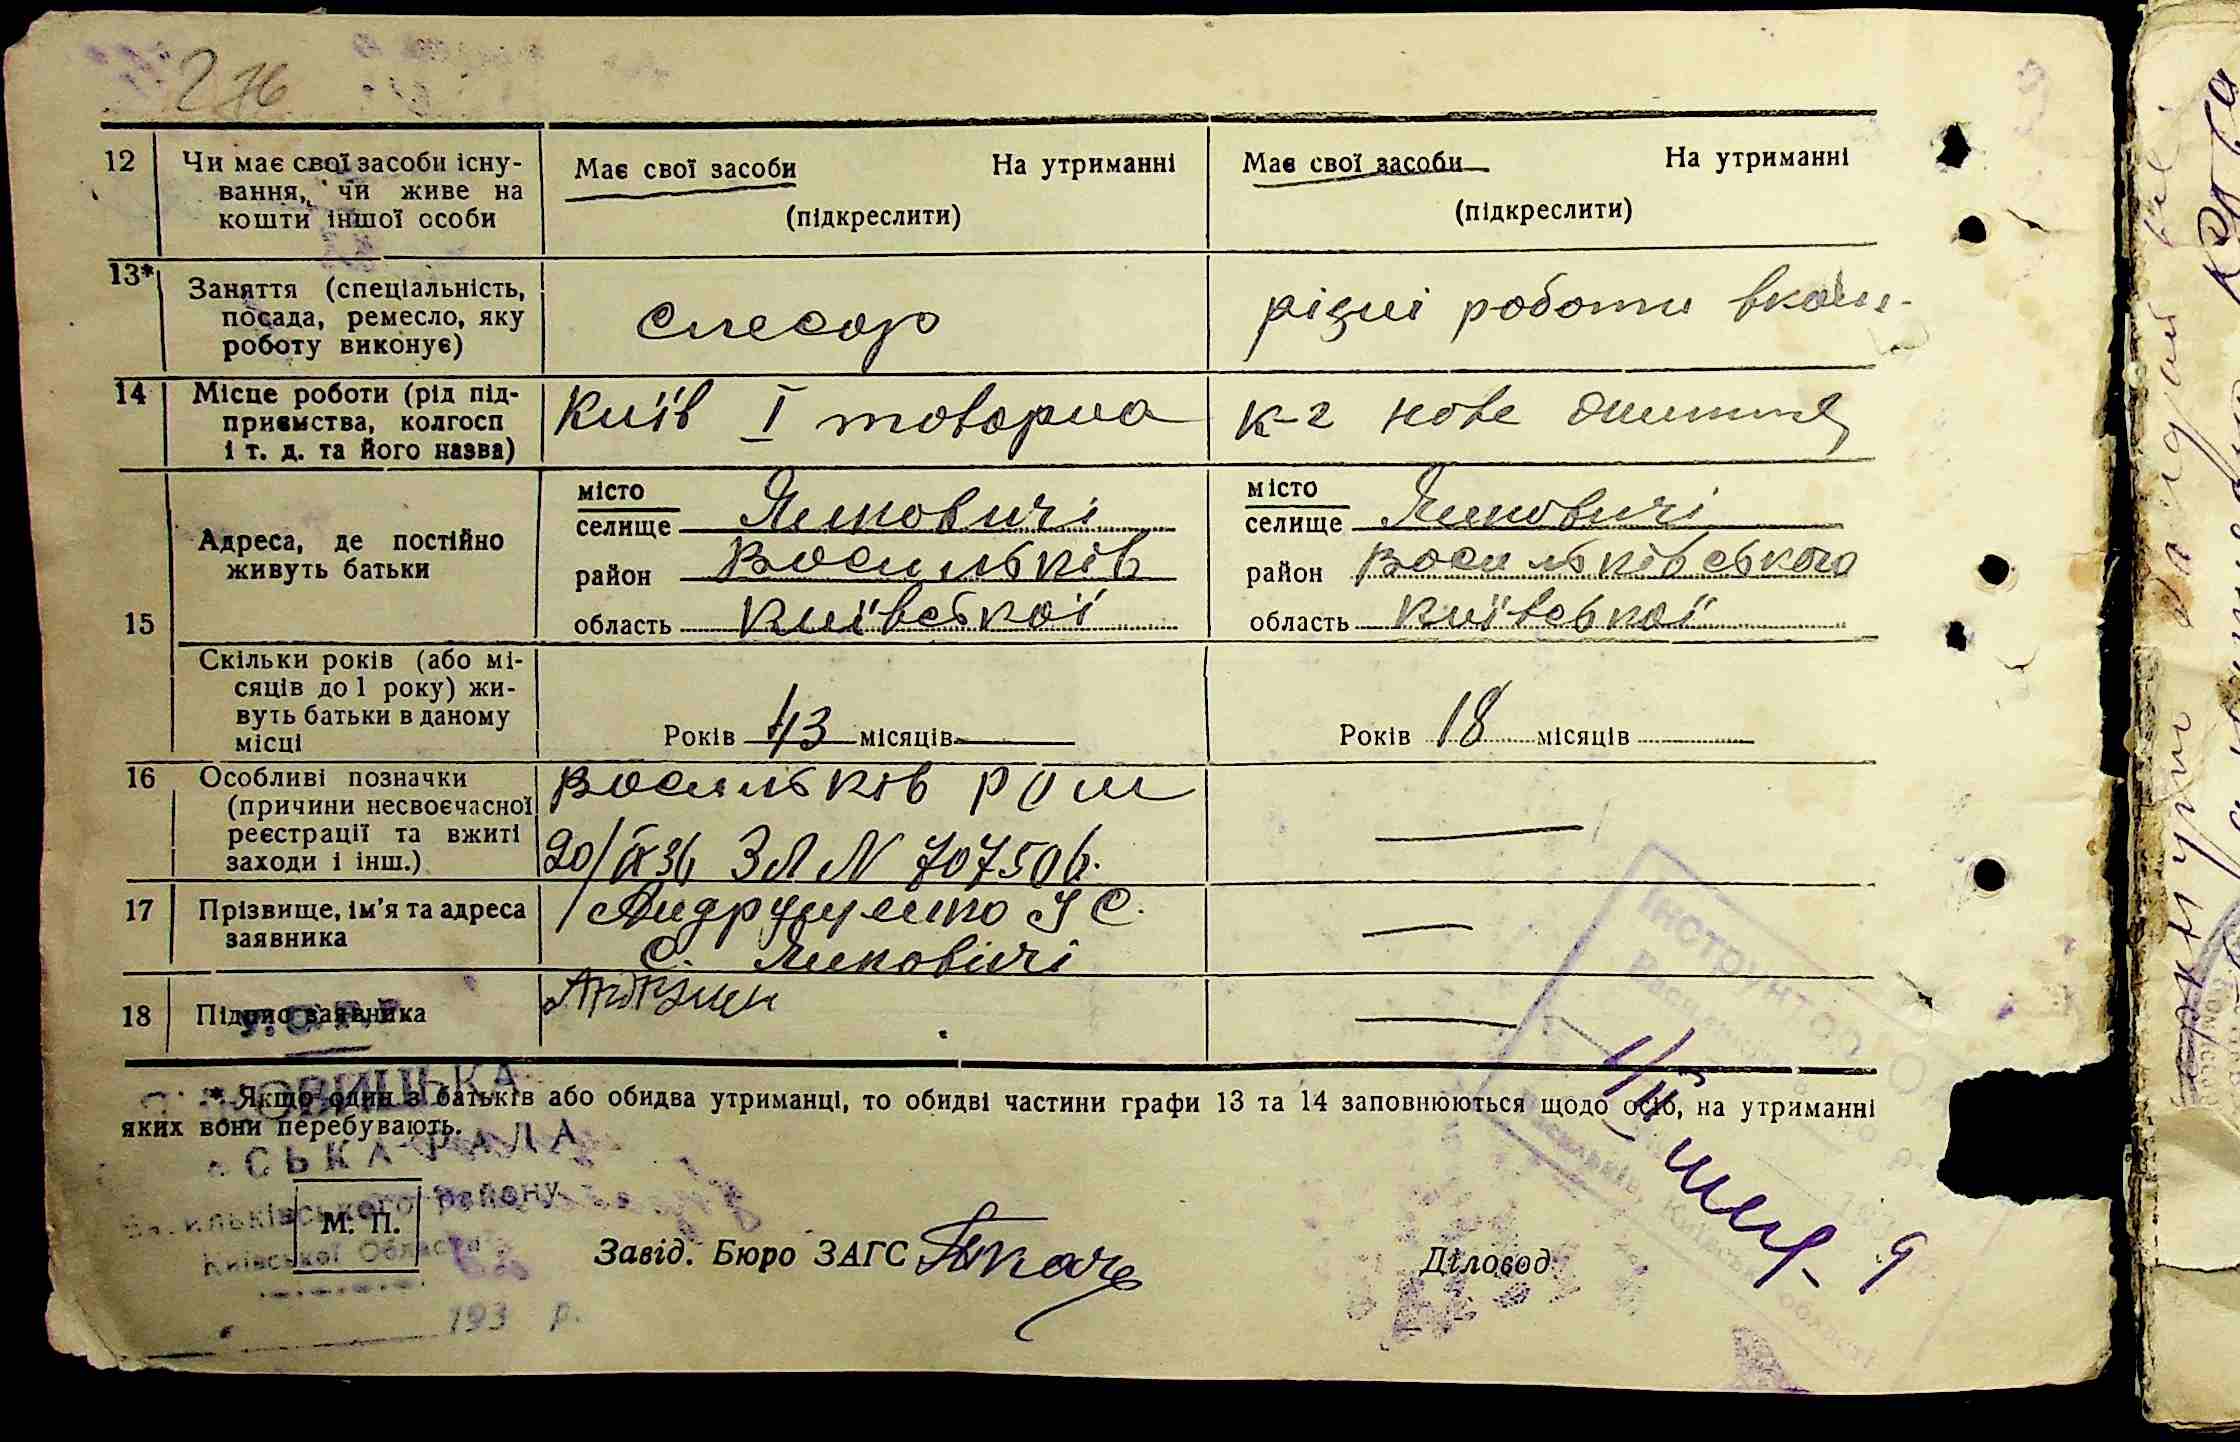 276
12
Чи має свої засоби існу-
вання, чи живе на
кошти іншої особи
Має свої засоби На утриманні
(підкреслити)
Має свої засоби На утриманні
(підкреслити)
13*
Заняття (спеціальність,
посада, ремесло, яку
роботу виконує)
слесар
різні роботи
14
Місце роботи (рід під-
приємства, колгосп
і т. д. та його назва)
Київ І товарна
к-г нове життя
15
Адреса, де постійно
живуть батьки
місто
селище Яцковичі
район Васильків
область Київської
місто
селище Яцковичі
район Васильківського
область Київської
Скільки років (або мі-
сяців до 1 року) жи-
вуть батьки в даному
місці
Років 43 місяців
Років 18 місяців
16
Особливі позначки
(причини несвоєчасної
реєстрації та вжиті
заходи і інш.)
Васильків
20/ІХ 36 ЗЛ N 707506.
17
Прізвище, ім'я та адреса
заявника
с. Яцковичі
18
Підпис заявника
* Якщо один з батьків або обидва утриманці, то обидві частини графи 13 та 14 заповнюються щодо осіб, на утриманні
яких вони перебувають.
СЬКА РАДА
Васильківського району
Київської Області
193 р.
М. П.
Завід. Бюро ЗАГС Ткач
Діловод
Васильків, Київської області